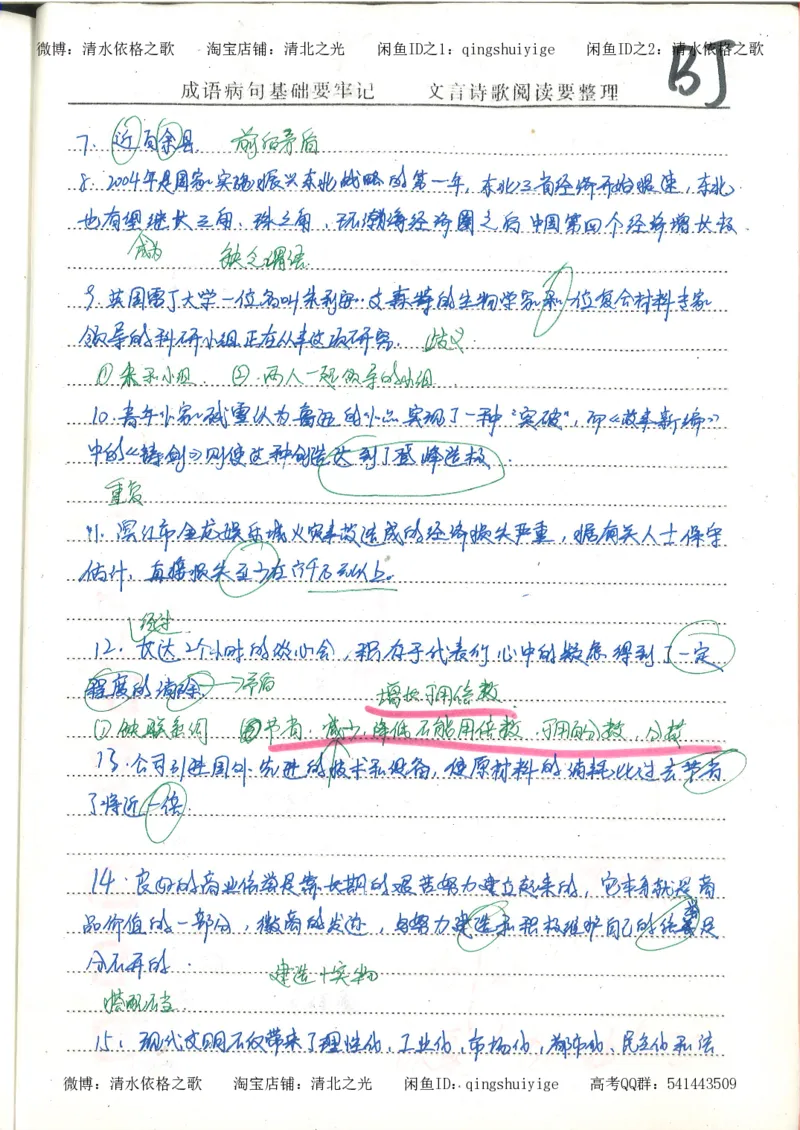 微博：清水依格之歌 淘宝店铺：清北之光 闲鱼ID之1：qingshuiyige 闲鱼ID之2：清水依格之歌
BJ
成语病句基础要牢记 文言诗歌阅读要整理
7. 近百余县 前后矛盾
8. 2004年是国家实施振兴东北战略的第一年，东北三省经济开始提速，东北
也有望继长三角、珠三角、环渤海经济圈之后 中国第四个经济增长极
成为 缺乏谓语
9. 英国雷丁大学一位名叫朱利安·文森特的生物学家和一位复合材料专家
领导的科研小组正在从事这项研究. 歧义
① 朱和小组 ② 两人一起领导的小组
10. 青年作家 认为鲁迅的小说实现了一种“突破”，而《故事新编》
中的《铸剑》则使这种创造达到了登峰造极.
重复
11. 市金龙娱乐城火灾事故造成的经济损失严重，据有关人士保守
估计，直接损失至少在六千万元以上。
经过
12. 长达2个小时的谈心会，积存于代表们心中的疑虑得到了一定
程度的消除 → 矛盾
增长可用倍数
① 缺联系词 ② 节省、减少、降低不能用倍数 可用分数、分数
13. 公司引进国外先进的技术和设备，使原材料的消耗比过去节省
了将近一倍
14. 良好的商业信誉是靠长期的艰苦努力建立起来的，它本身就是商
品价值的一部分，徽商的发迹，与努力建造和积极维护自己的信誉是
分不开的.
建造+实物
搭配不当
15. 现代文明不仅带来了理性化、工业化、市场化、都市化、民主化和法
微博：清水依格之歌 淘宝店铺：清北之光 闲鱼ID：qingshuiyige 高考QQ群：541443509